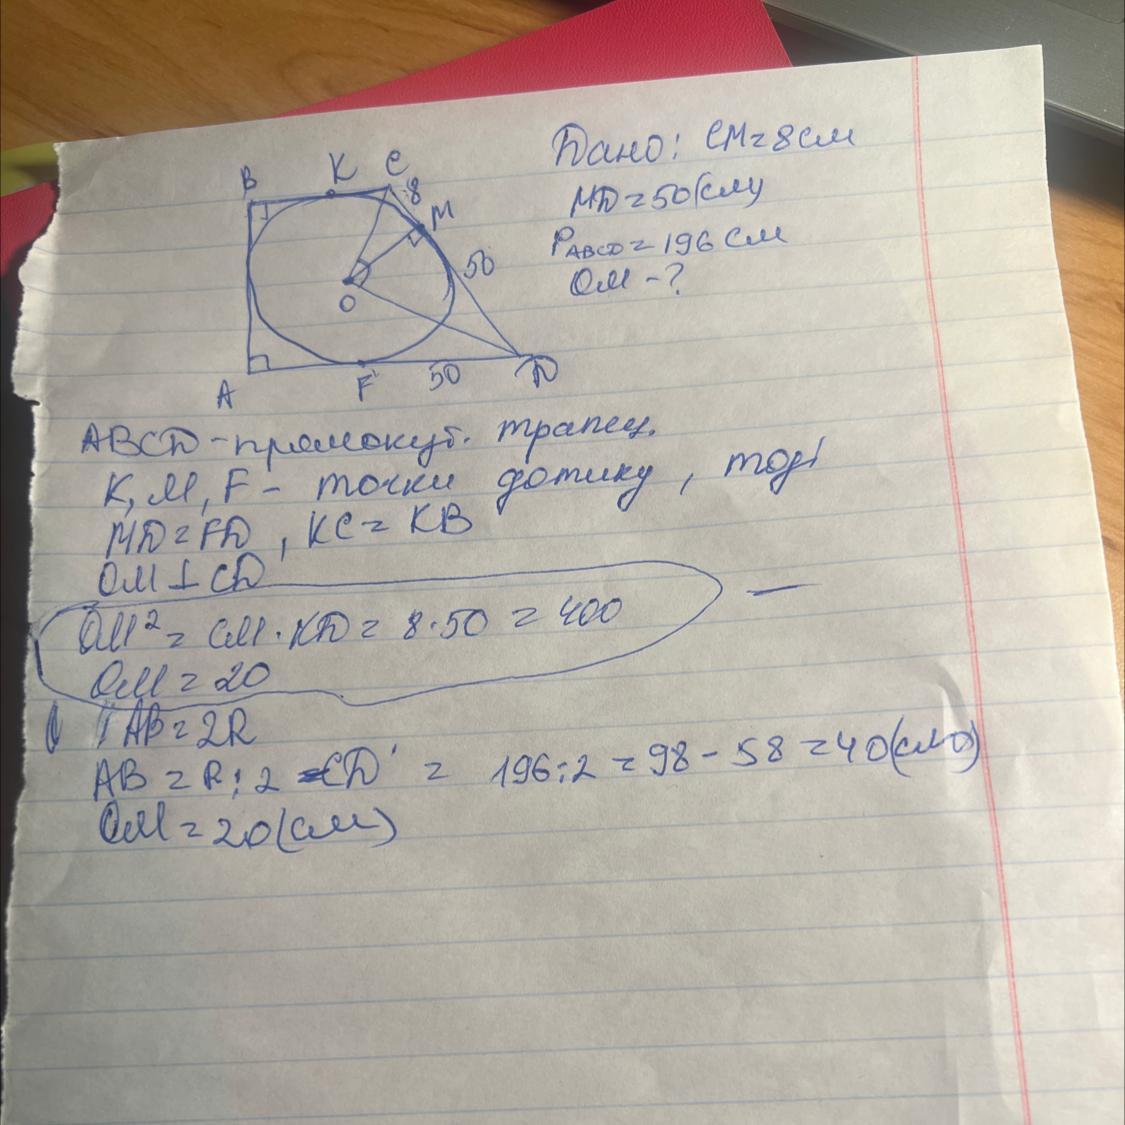 B K C
8
M
50
O
A F 50 D
Дано: CM = 8 см
MD = 50 (см)
P ABCD = 196 см
OM - ?
ABCD - прямокут. трапец.
K, M, F - точки дотику, тоді
MD = FD, KC = KB
OM ⊥ CD
OM² = CM · KD = 8 · 50 = 400
OM = 20
AB = 2R
AB = P : 2 - CD = 196 : 2 = 98 - 58 = 40 (см)
OM = 20 (см)